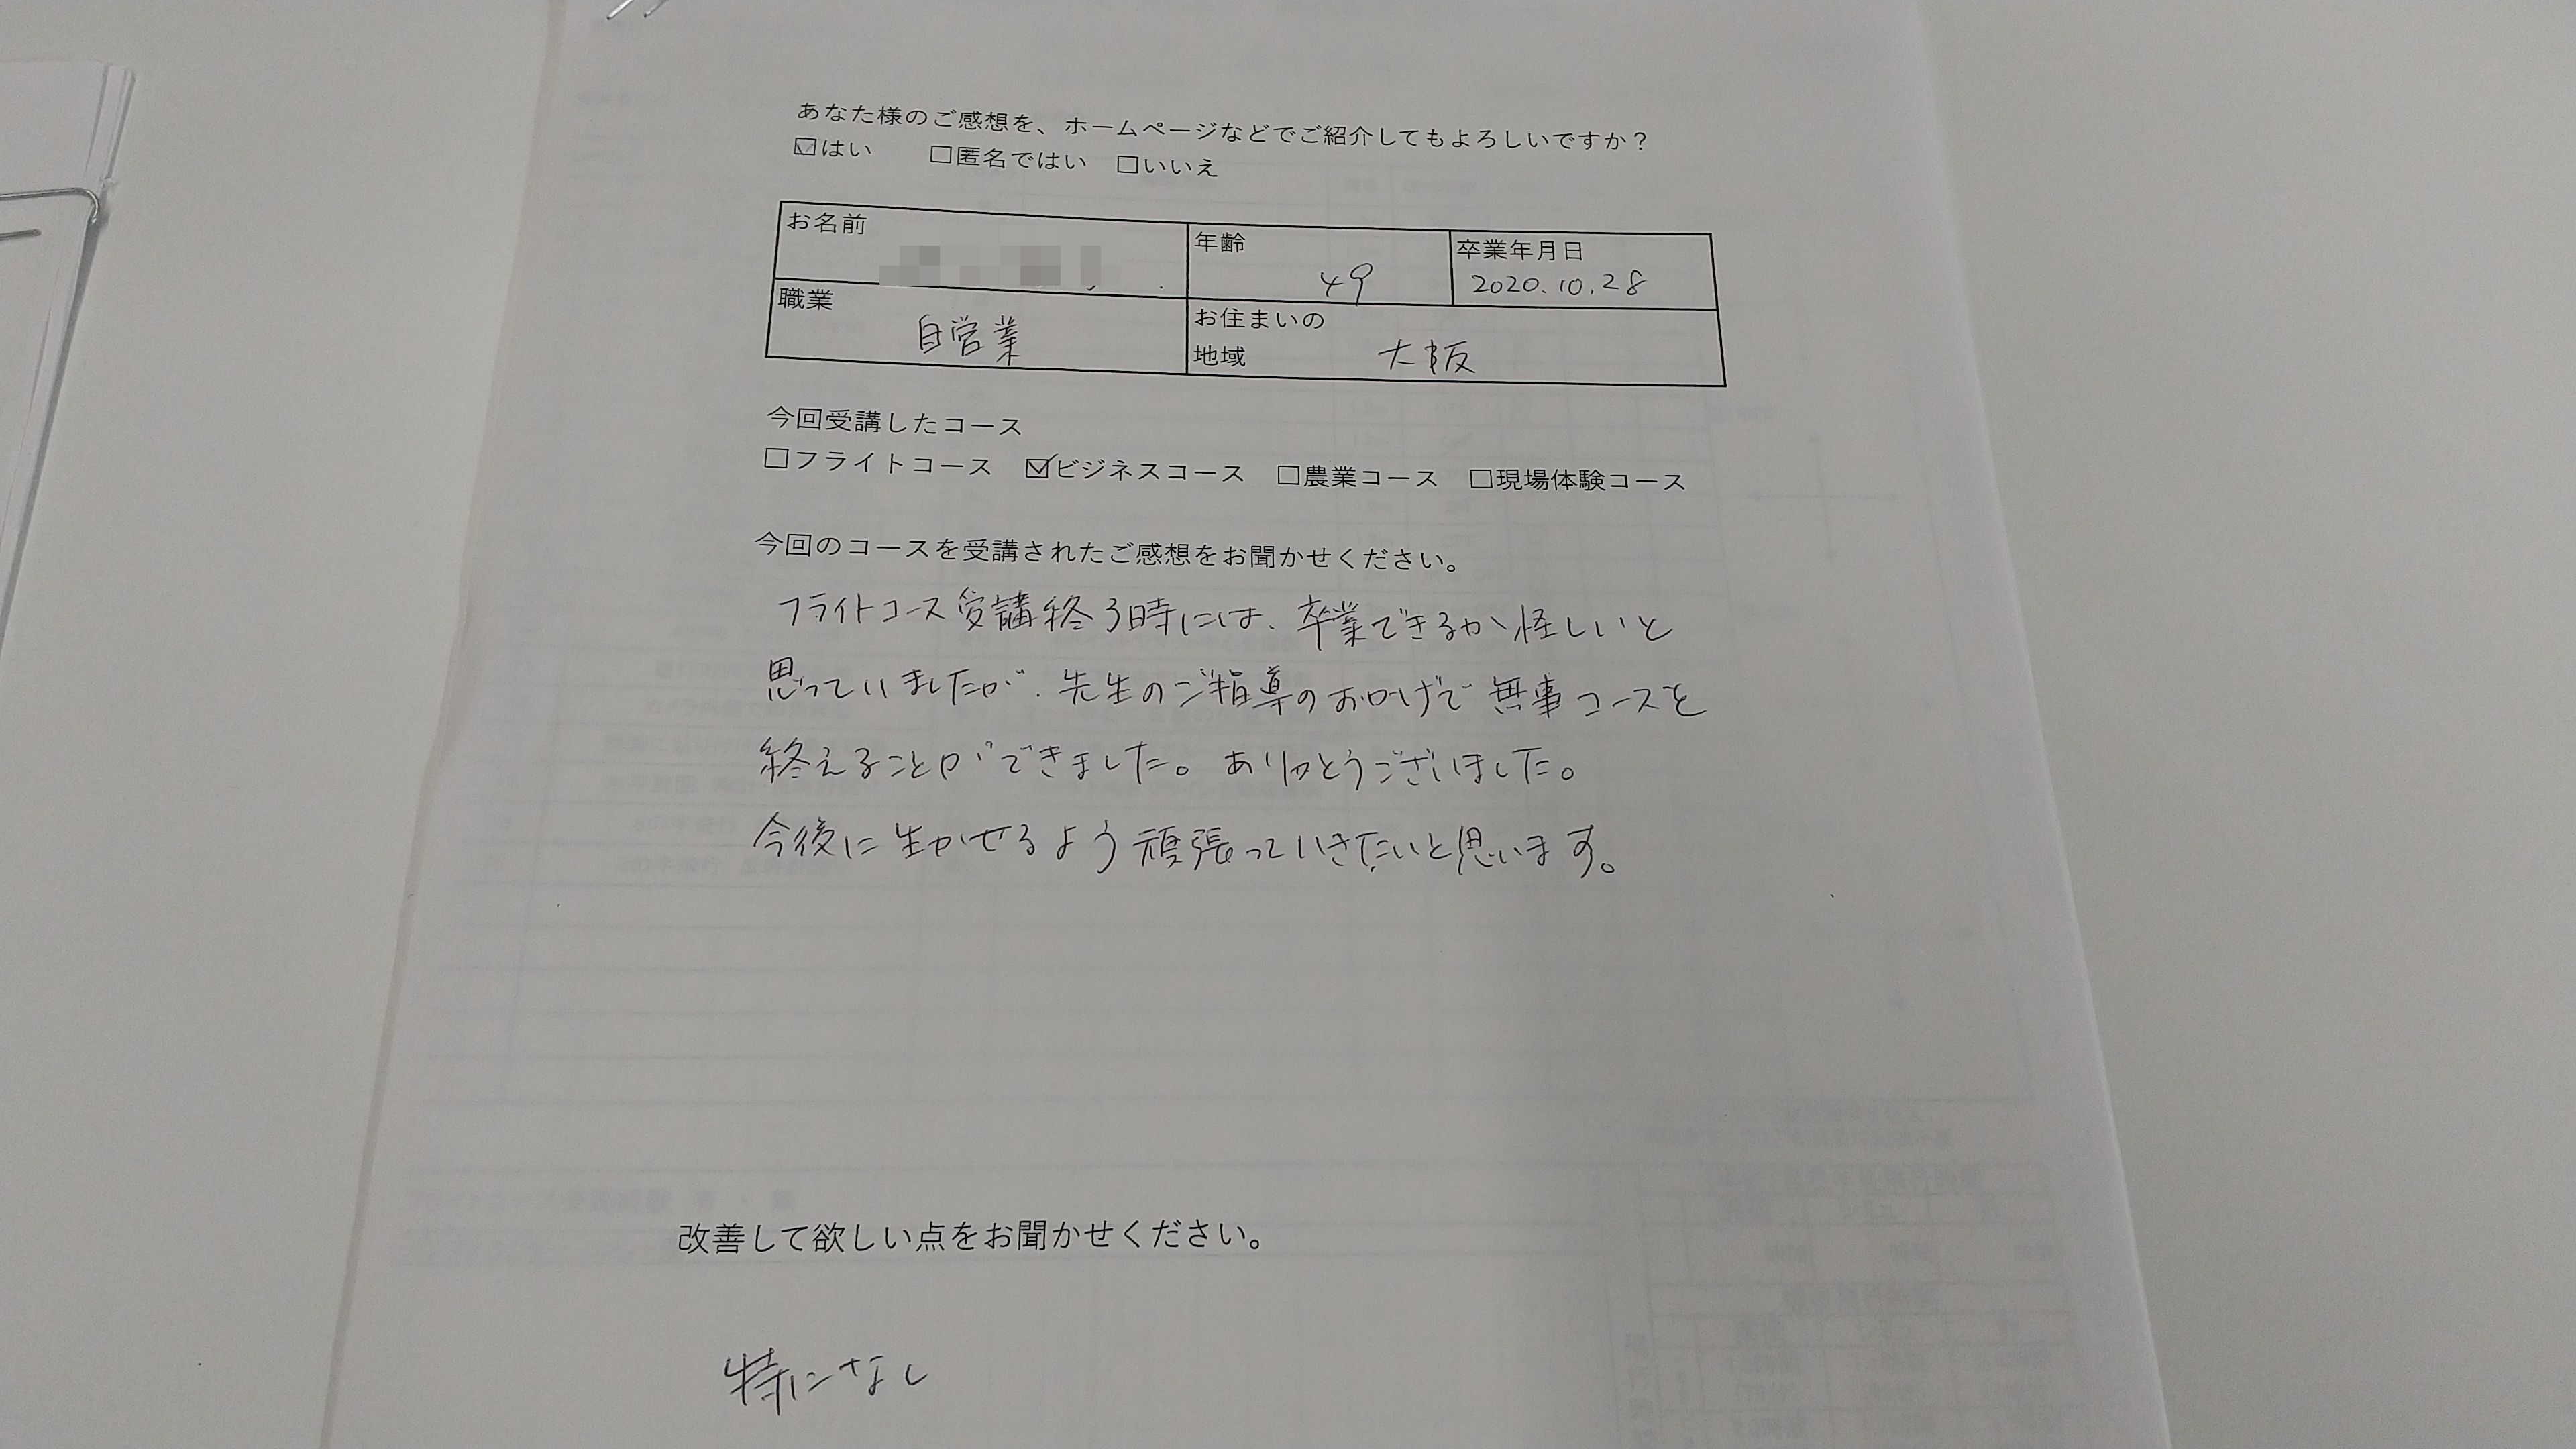 あなた様のご感想を、ホームページなどでご紹介してもよろしいですか？
☑はい □匿名ではい □いいえ
お名前
年齢
49
卒業年月日
2020.10.28
職業
自営業
お住まいの
地域
大阪
今回受講したコース
□フライトコース ☑ビジネスコース □農業コース □現場体験コース
今回のコースを受講されたご感想をお聞かせください。
フライトコース受講終了時には、卒業できるか怪しいと
思っていましたが、先生のご指導のおかげで無事コースを
終えることができました。ありがとうございました。
今後に生かせるよう頑張っていきたいと思います。
改善して欲しい点をお聞かせください。
特になし